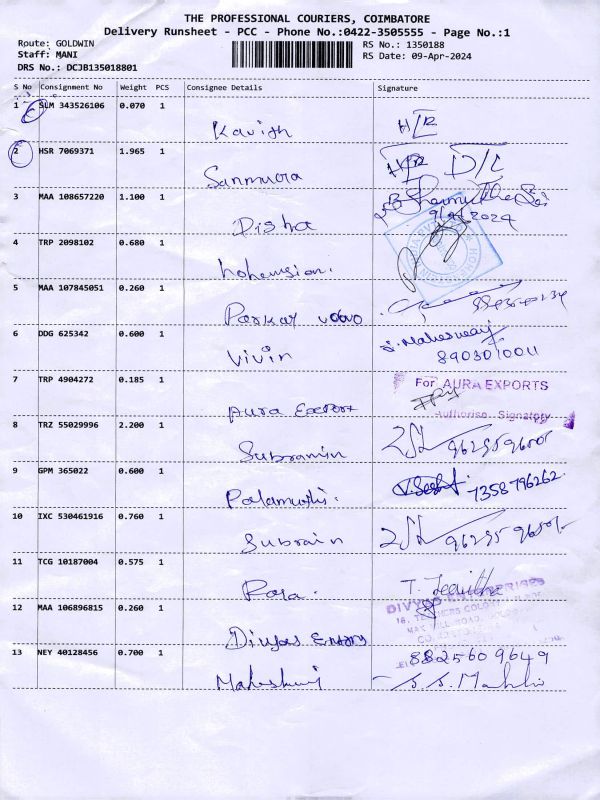 THE PROFESSIONAL COURIERS, COIMBATORE
Delivery Runsheet - PCC - Phone No.:0422-3505555 - Page No.:1
Route: GOLDWIN
RS No.: 1350188
Staff: MANI
RS Date: 09-Apr-2024
DRS No.: DCJB135018801
S No Consignment No Weight PCS Consignee Details Signature
1 SLM 343526106 0.070 1
Kavish H/R
2 HSR 7069371 1.965 1
Sanmura D/C
3 MAA 108657220 1.100 1
Disha
9/4/2024
4 TRP 2098102 0.680 1
5 MAA 107845051 0.260 1
Parkar
6 DDG 625342 0.600 1
Vivin
8903010011
7 TRP 4904272 0.185 1
For AURA EXPORTS
Aura Export
Authorise Signatory
8 TRZ 55029996 2.200 1
Subramin
9 GPM 365022 0.600 1
7358796262
10 IXC 530461916 0.760 1
Subrain
11 TCG 10187004 0.575 1
Rasa. T. Jeevitha
12 MAA 106896815 0.260 1
Divyas
13 NEY 40128456 0.700 1
8825609649